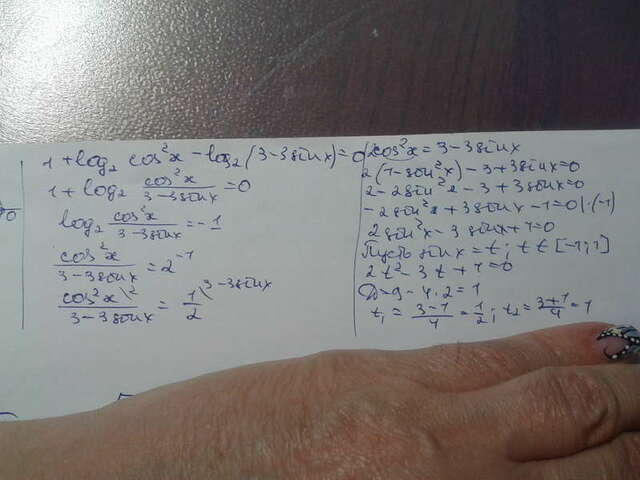 1 + log₂ cos²x − log₂(3−3sinx) = 0
1 + log₂ cos²x / (3−3sinx) = 0
log₂ cos²x / (3−3sinx) = −1
cos²x / (3−3sinx) = 2⁻¹
cos²x \² / (3−3sinx) = 1/2 \³⁻³ˢⁱⁿˣ
2cos²x = 3−3sinx
2(1−sin²x)−3+3sinx=0
2−2sin²x−3+3sinx=0
−2sin²x+3sinx−1=0 |·(−1)
2sin²x−3sinx+1=0
Пусть sinx = t; t ∈ [−1;1]
2t²−3t+1=0
Д=9−4·2=1
t₁ = (3−1)/4 = 1/2; t₂ = (3+1)/4 = 1